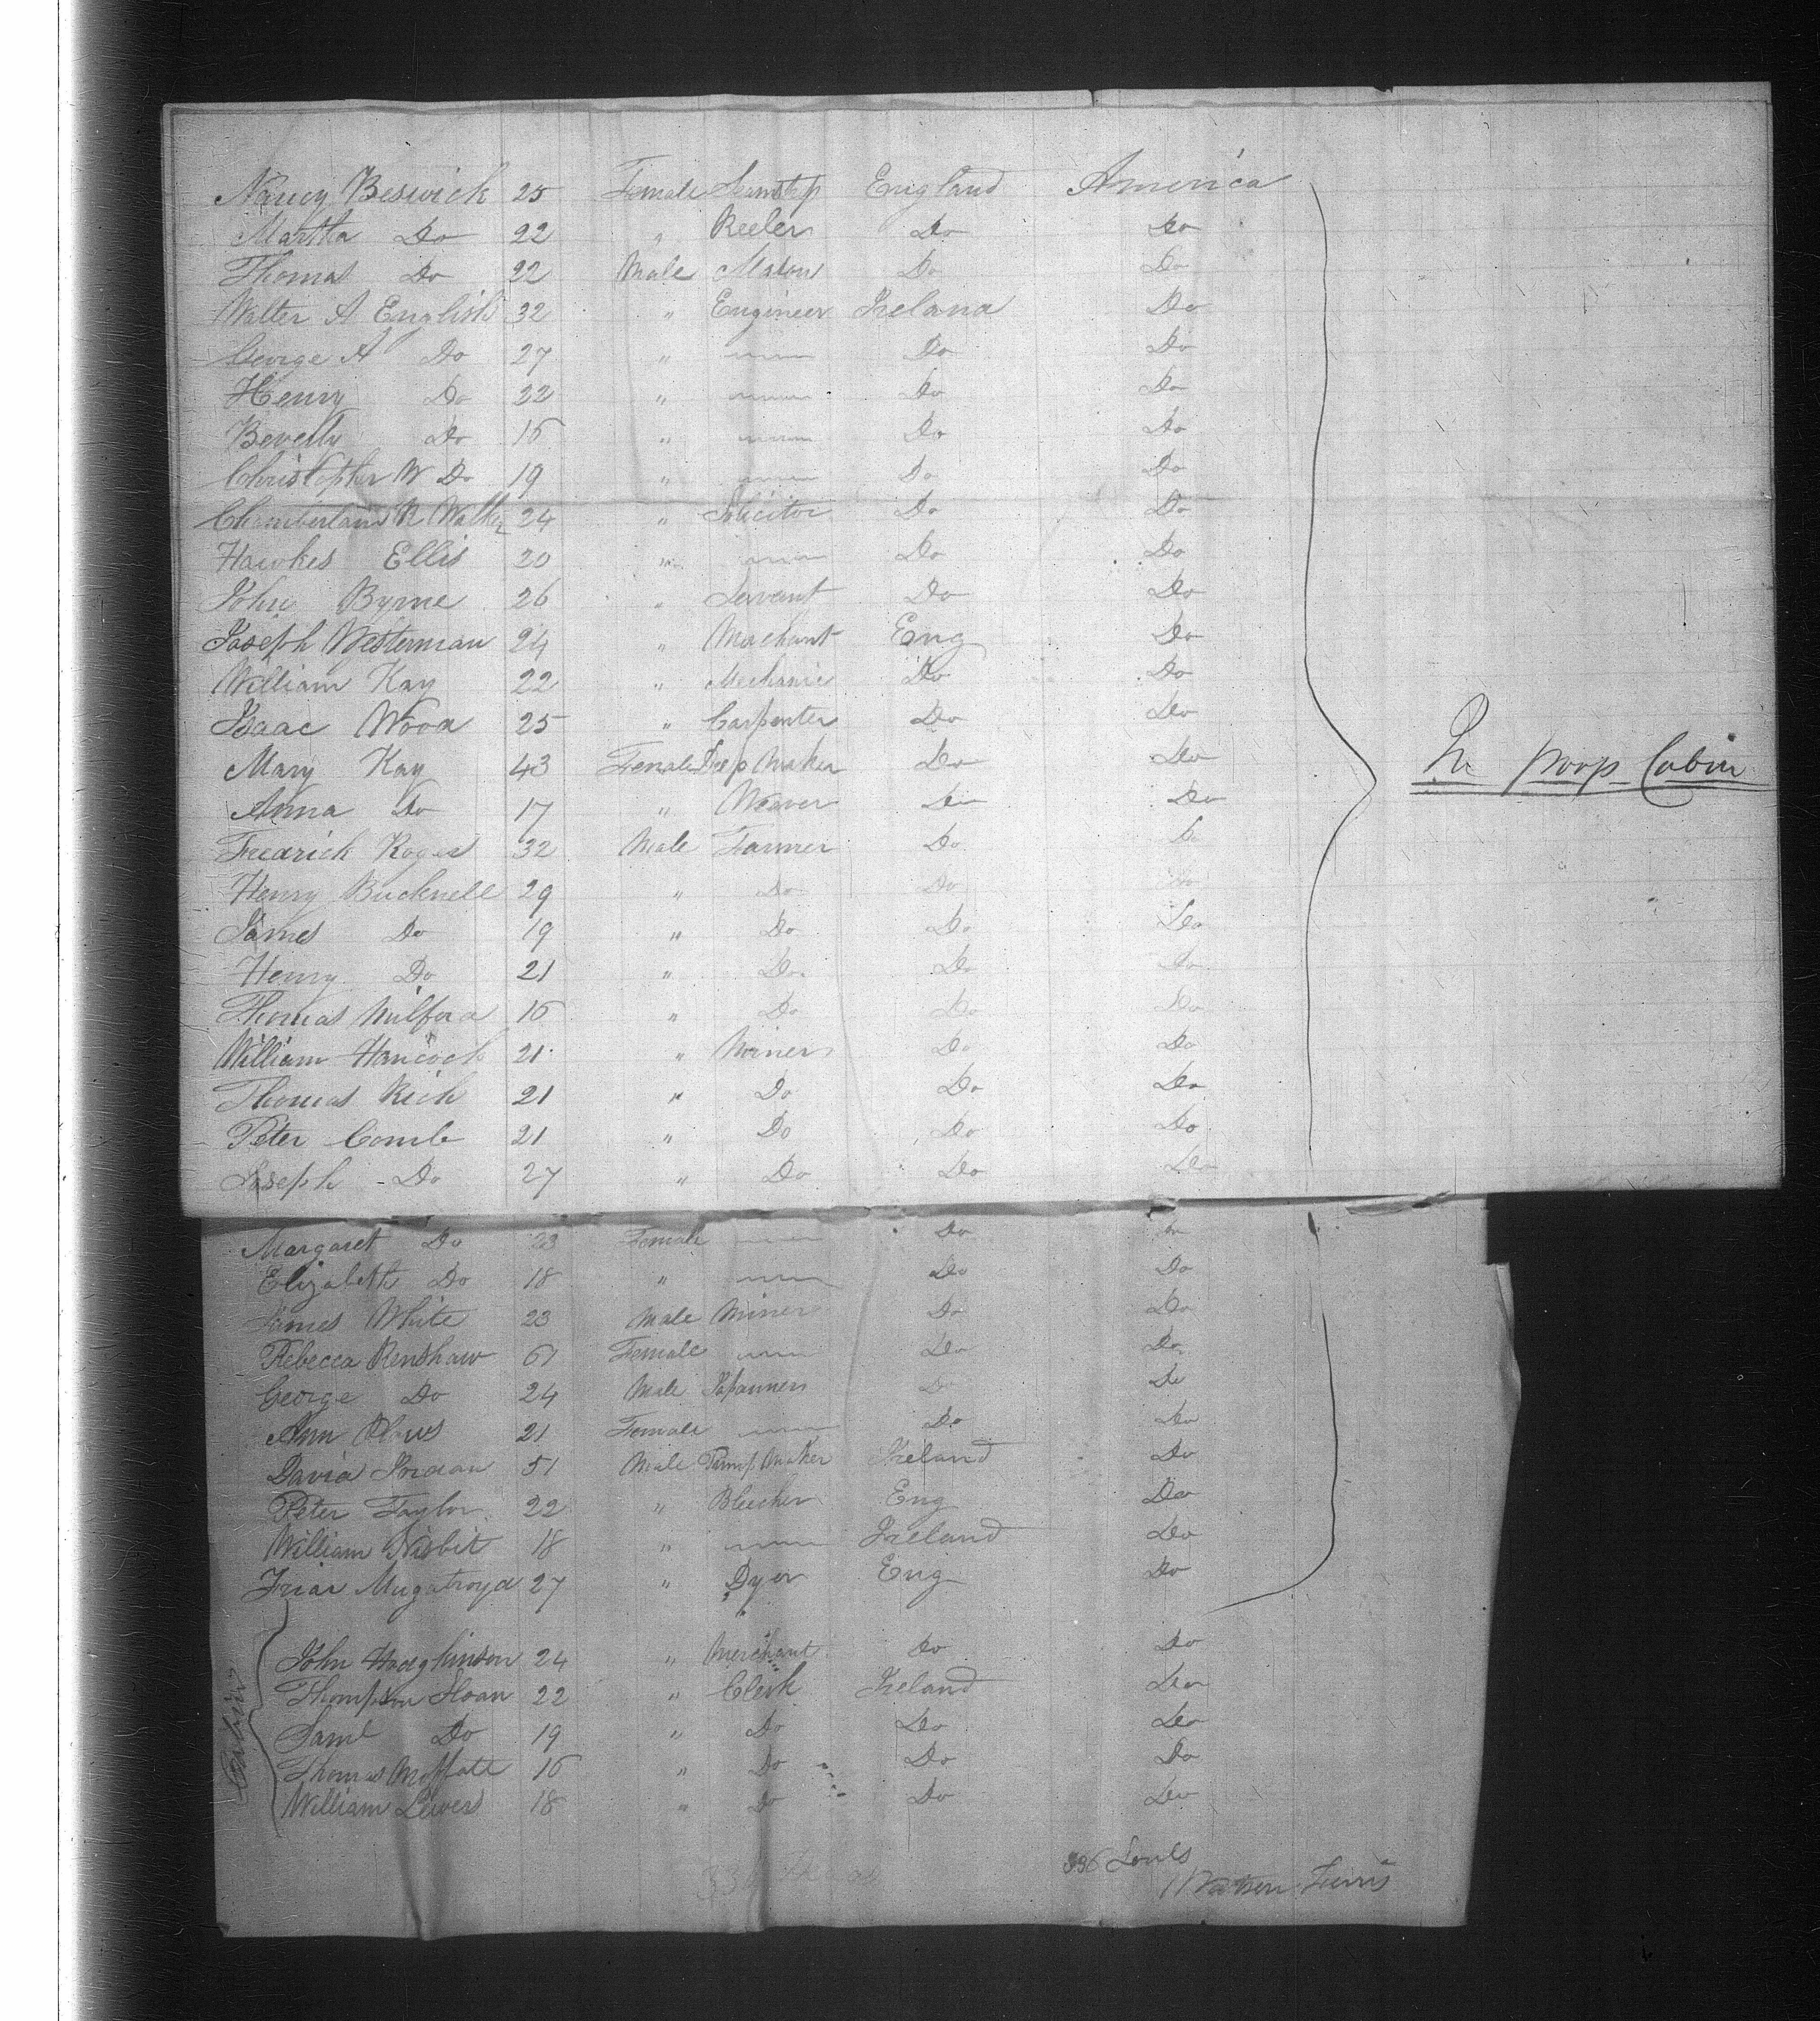 Nancy Beswick 25 Female Seamstress England America
Martha Do 22 " Reeler Do Do
Thomas Do 22 Male Mason Do Do
Walter A English 32 " Engineer Ireland Do
George A Do 27 " Do Do
Henry Do 22 " Do Do
Beverly Do 15 " Do Do
Christopher W Do 19 " Do Do
Chamberland R Walker 24 " Solicitor Do Do
Hawkes Ellis 20 " Do Do
John Byrne 26 " Servant Do Do
Joseph Westerman 24 " Merchant Eng Do
William Kay 22 " Mechanic Do Do
Isaac Wood 25 " Carpenter Do Do
In Poop Cabin
Mary Kay 43 Female Dress Maker Do Do
Anna Do 17 " Weaver Do Do
Fredrick Roges 32 Male Farmer Do Do
Henry Bucknell 29 " Do Do Do
James Do 19 " Do Do Do
Henry Do 21 " Do Do Do
Thomas Milford 16 " Do Do Do
William Hancock 21 " Miner Do Do
Thomas Rich 21 " Do Do Do
Peter Comb 21 " Do Do Do
Joseph Do 27 " Do Do Do
Margaret Do 23 Female Do Do
Elizabeth Do 18 " Do Do
James White 23 Male Miner Do Do
Rebecca Renshaw 61 Female Do Do
George Do 24 Male Japanner Do Do
Ann 21 Female Do Do
David Jordan 51 Male Pump Maker Ireland Do
Peter Taylor 22 " Bleecher Eng Do
William Nisbit 18 " Ireland Do
Friar Mugatroyd 27 " Dyer Eng Do
Cabin
John Hodgkinson 24 " Merchant Do Do
Thompson Sloan 22 " Clerk Ireland Do
Saml Do 19 " Do Do Do
Thomas Moffatt 16 " Do Do Do
William Lewers 18 " Do Do Do
336 Souls
Watson Ferris